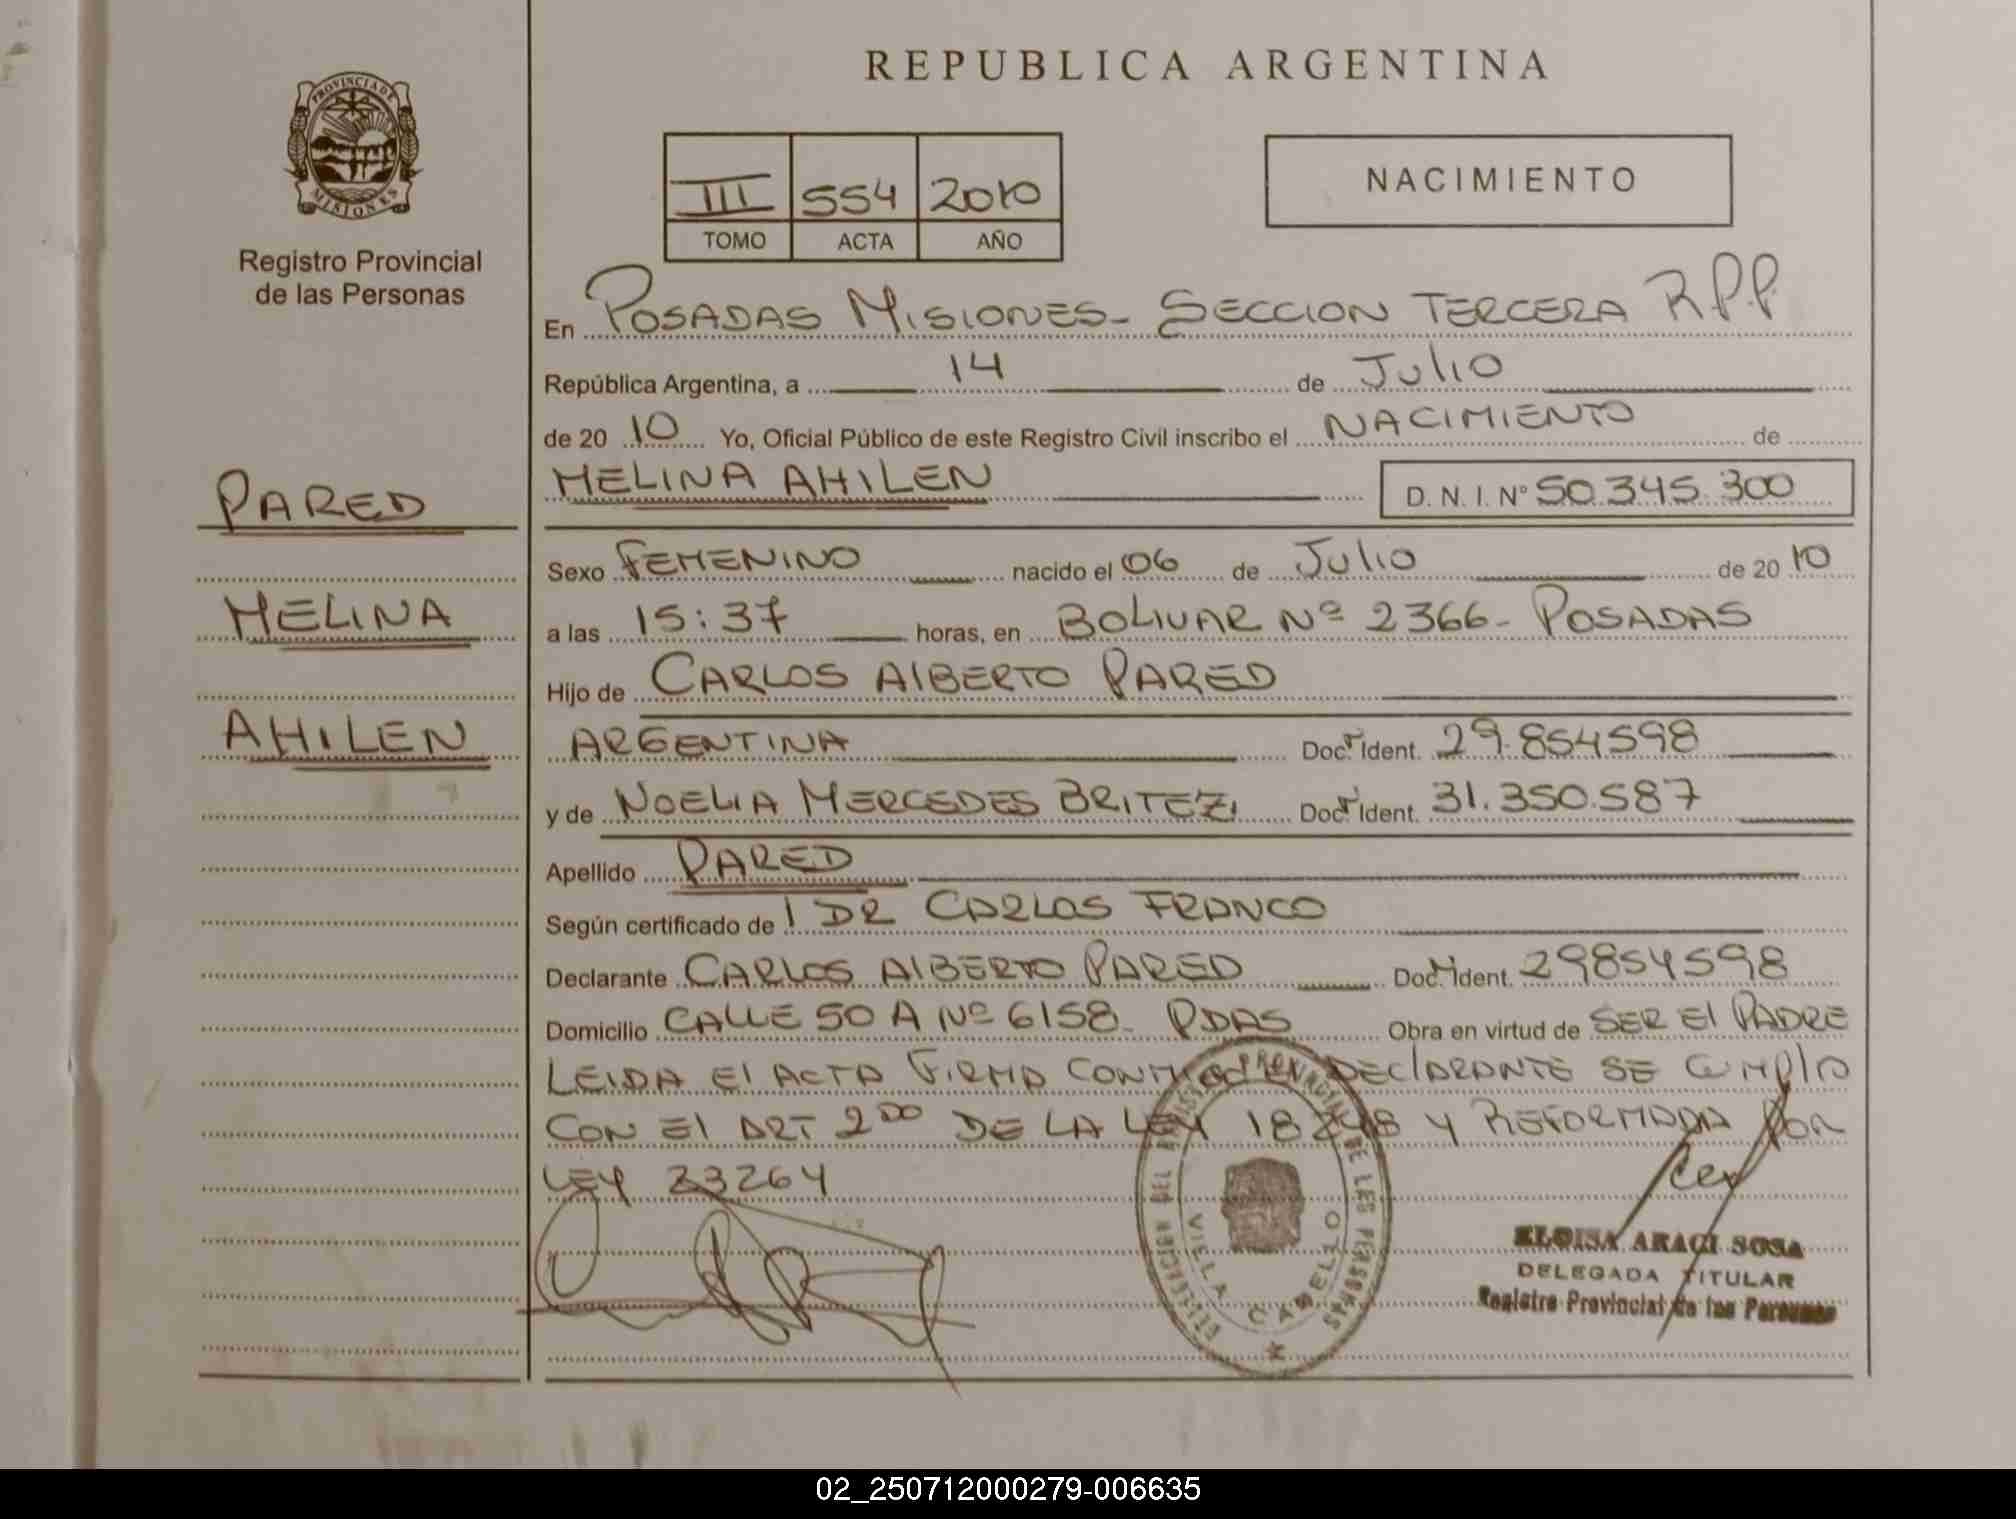 REPUBLICA ARGENTINA
PROVINCIA DE
MISIONES
Registro Provincial
de las Personas
III 554 2010
TOMO ACTA AÑO
NACIMIENTO
En POSADAS MISIONES - SECCION TERCERA R.P.P
República Argentina, a 14 de Julio
de 20 10 Yo, Oficial Público de este Registro Civil inscribo el NACIMIENTO de
MELINA AHILEN D. N. I. Nº 50.345.300
PARED
MELINA
AHILEN
Sexo FEMENINO nacido el 06 de Julio de 20 10
a las 15:37 horas, en BOLIVAR Nº 2366 - POSADAS
Hijo de CARLOS ALBERTO PARED
ARGENTINA Doc. Ident. 29.854598
y de NOELIA MERCEDES BRITEZ Doc. Ident. 31.350.587
Apellido PARED
Según certificado de DR CARLOS FRANCO
Declarante CARLOS ALBERTO PARED Doc. Ident. 29854598
Domicilio CALLE 50 A Nº 6158 - PDAS Obra en virtud de SER El PADRE
LEIDA El ACTA FIRMA CONMIGO DECLARANTE SE CUMPLIO
CON El ART 2DO DE LA LEY 18248 Y REFORMADA POR
LEY 23264
DELEGACION DEL REGISTRO PROVINCIAL DE LAS PERSONAS
VILLA CABELLO
ELOISA ARACI SOSA
DELEGADA TITULAR
Registro Provincial de las Personas
02_250712000279-006635